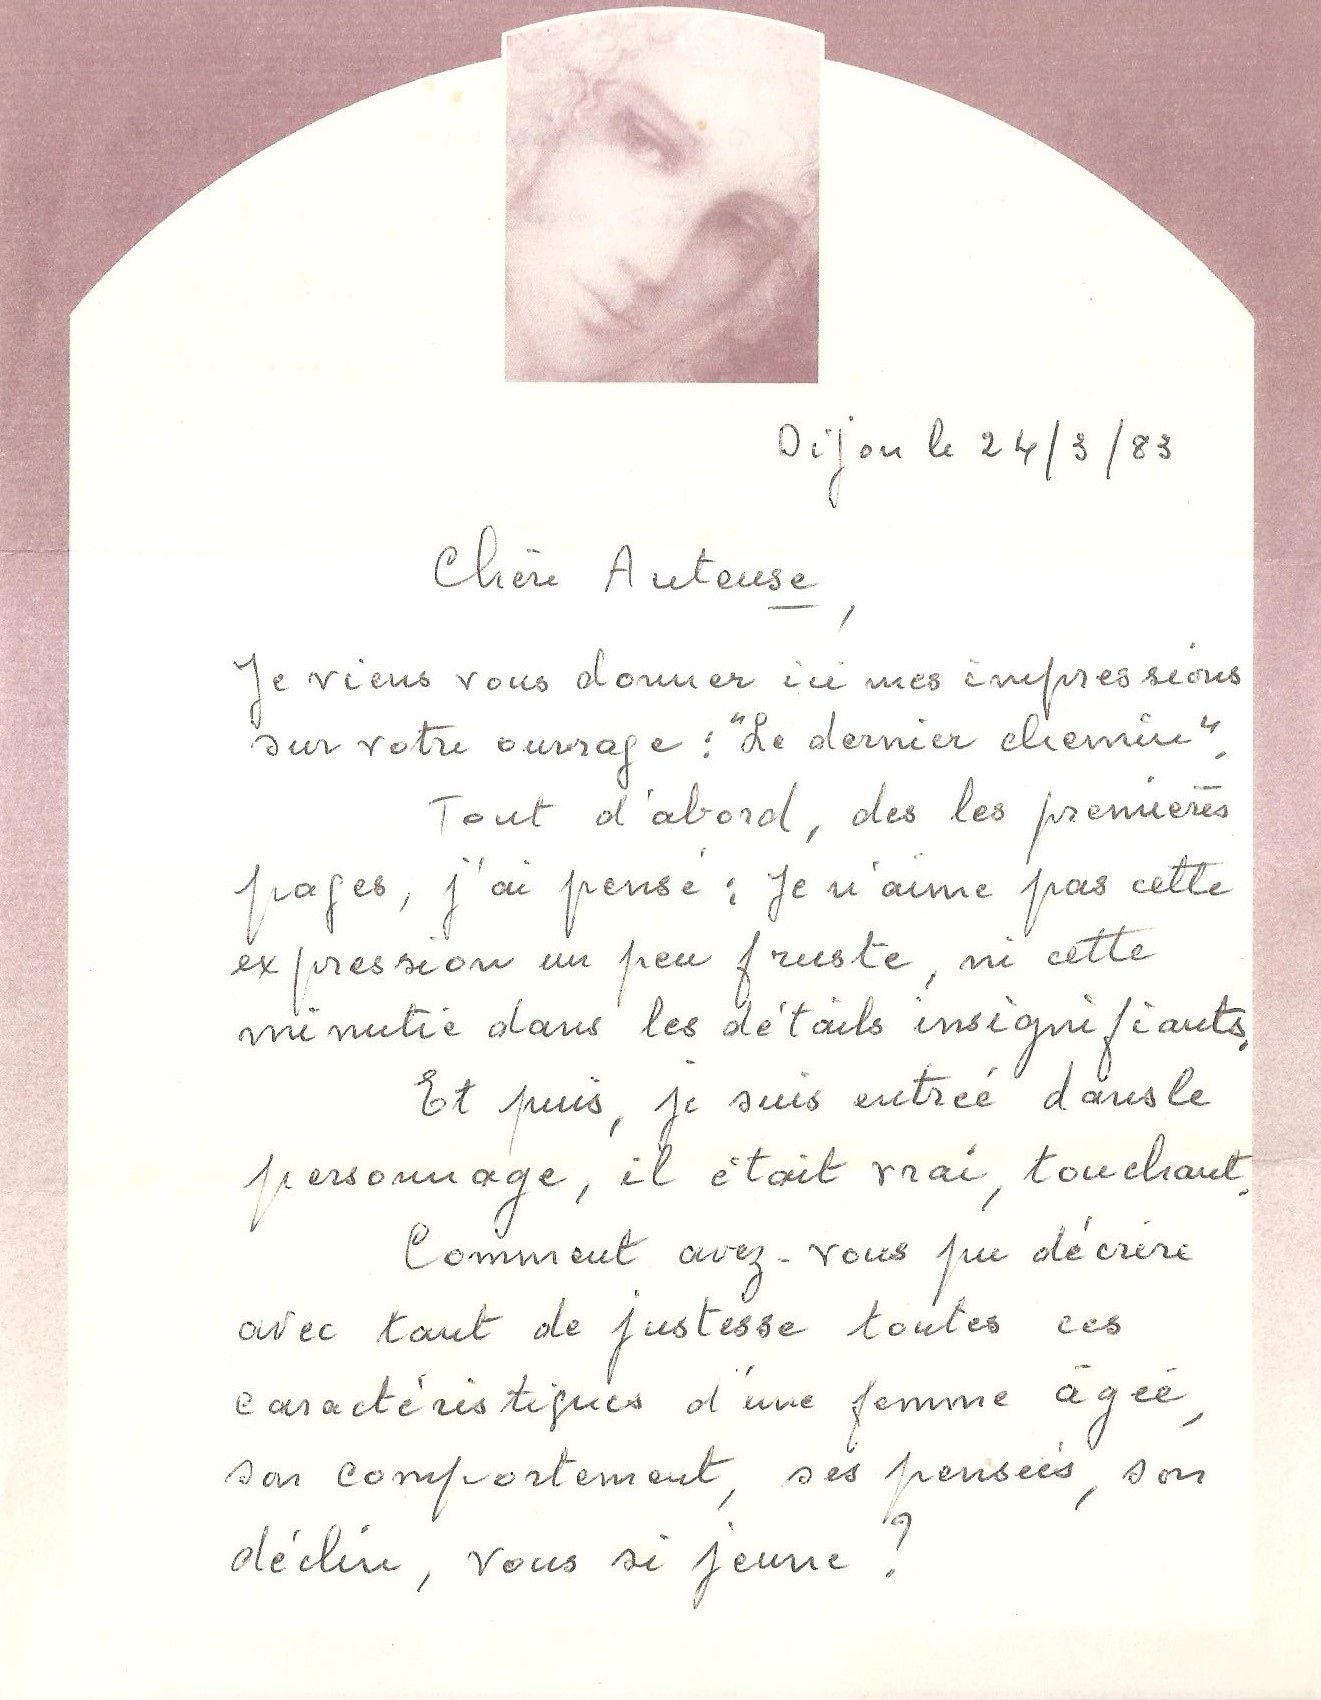 Dijon le 24/3/83
Chère Auteuse,
Je viens vous donner ici mes impressions
sur votre ouvrage : "Le dernier chemin".
Tout d'abord, des les premières
pages, j'ai pensé : Je n'aime pas cette
expression un peu fruste, ni cette
minutie dans les détails insignifiants.
Et puis, je suis entrée dans le
personnage, il était vrai, touchant.
Comment avez-vous pu décrire
avec tant de justesse toutes ces
caractéristiques d'une femme âgée,
son comportement, ses pensées, son
déclin, vous si jeune ?